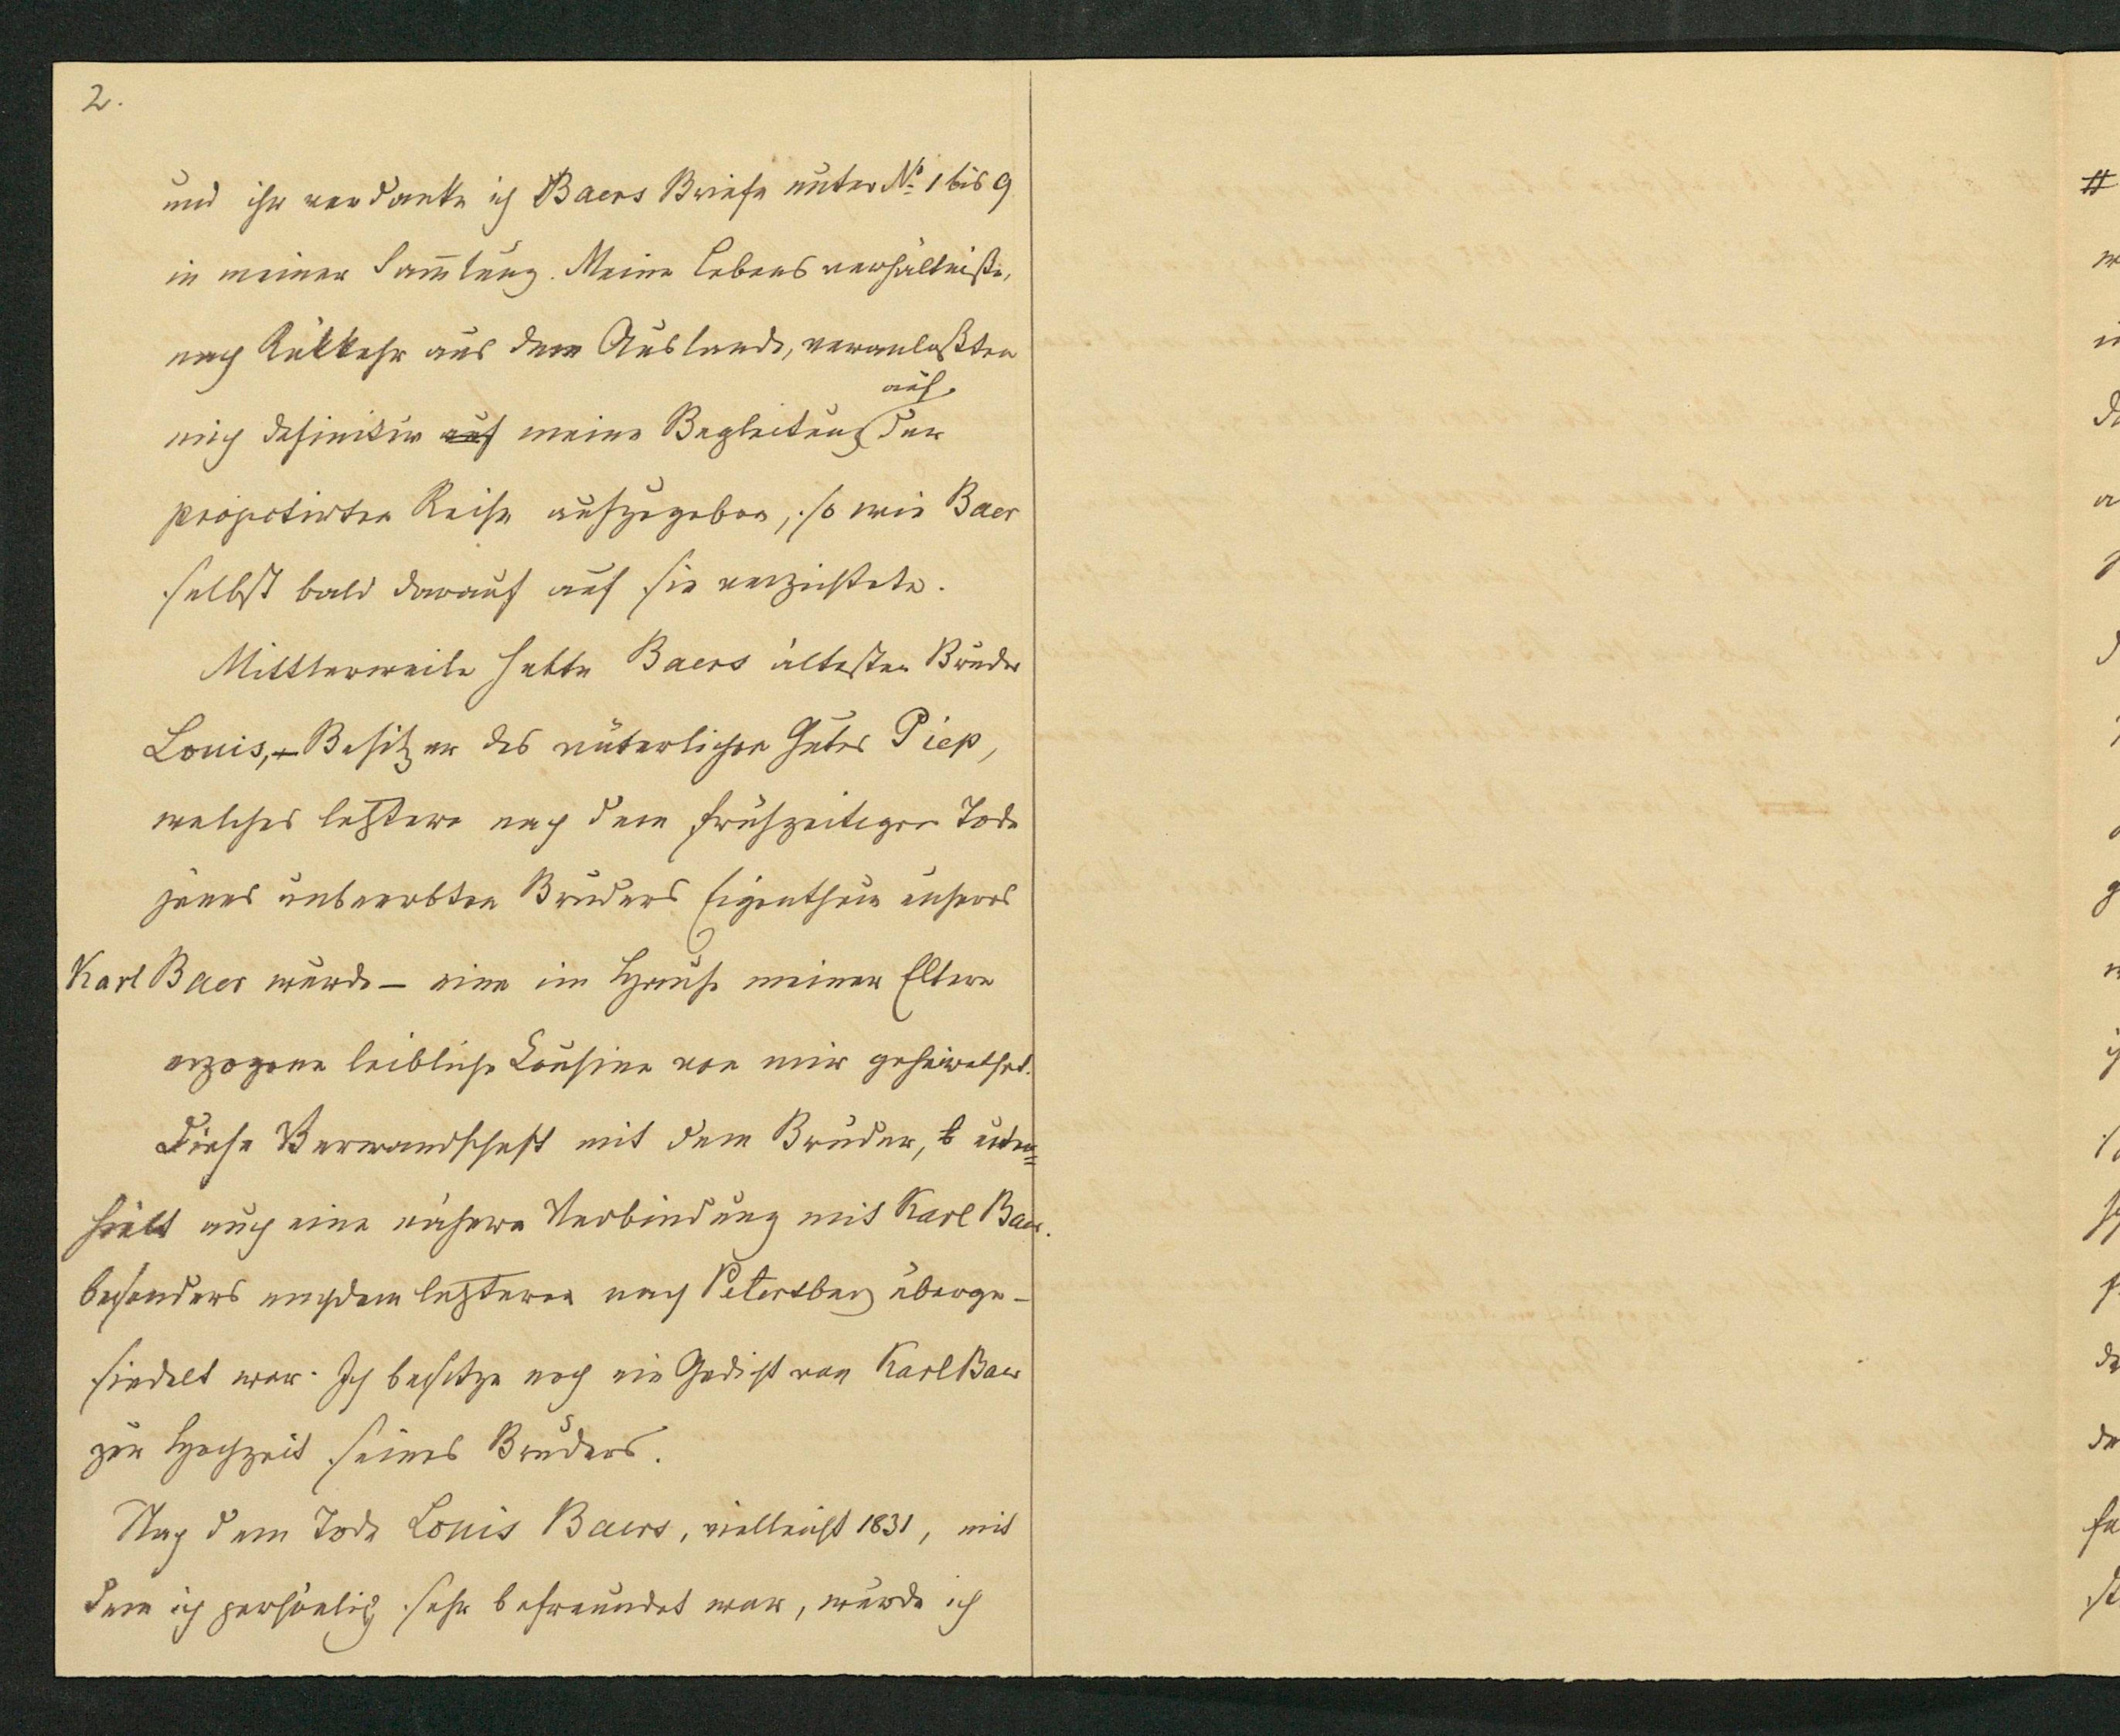 2.
und ihr verdanke ich Baers Briefe unter No 1 bis 9
in meiner Sam̄lung. Meine Lebensverhältniße,
nach Rükkehr aus dem Auslande, veranlaßten
auf
mich definitiv auf meine Begleitung der
projectirten Reise aufzugeben, so wie Baer
selbst bald darauf auf sie verzichtete.
Mittlerweile hatte Baers ältester Bruder
Louis, – Besitzer des väterlichen Gutes Piep,
welches letztere nach dem frühzeitigen Tode
jenes unbeerbten Bruders Eigenthum unseres
Karl Baer wurde – eine im Hause meiner Eltern
erzogene leibliche Cousine von mir geheirathet.
Diese Verwandschaft mit dem Bruder, unter=
hielt auch eine nähere Verbindung mit Karl Baer.
besonders nachdem letzterer nach Petersburg überge-
siedelt war. Ich besitze noch ein Gedicht von Karl Baer
zur Hochzeit seines Bruders.
Nach dem Tode Louis Baers, vielleicht 1831, mit
dem ich persönlich sehr befreundet war, wurde ich